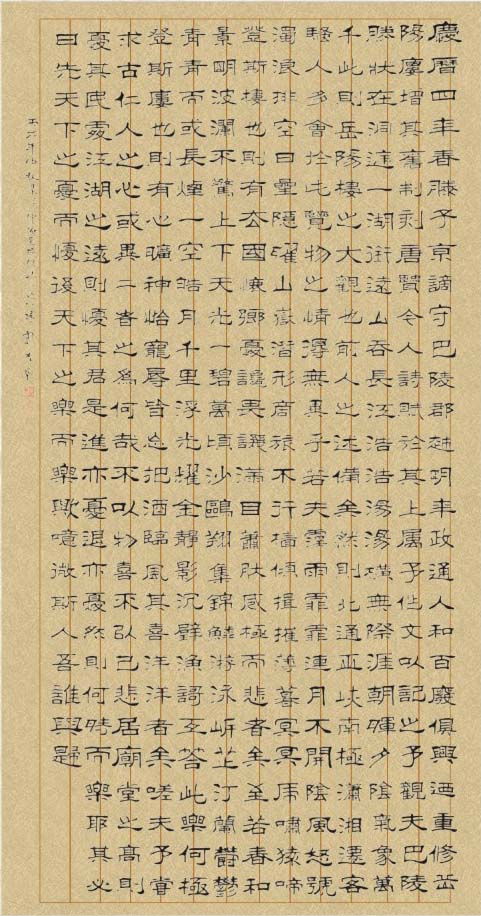 慶曆四年春滕子京謫守巴陵郡越明年政通人和百廢俱興迺重修岳
陽樓增其舊制刻唐賢今人詩賦於其上属予作文以記之予觀夫巴陵
勝狀在洞庭一湖銜遠山吞長江浩浩湯湯橫無際涯朝暉夕陰氣象萬
千此則岳陽樓之大觀也前人之述備矣然則北通巫峽南極瀟湘遷客
騷人多會於此覽物之情得無異乎若夫霪雨霏霏連月不開陰風怒號
濁浪排空日星隱曜山嶽潛形商旅不行檣傾楫摧薄暮冥冥虎嘯猿啼
登斯樓也則有去國懷鄉憂讒畏譏滿目蕭然感極而悲者矣至若春和
景明波瀾不驚上下天光一碧萬頃沙鷗翔集錦鱗游泳岸芷汀蘭鬱鬱
青青而或長煙一空皓月千里浮光耀金靜影沉璧漁歌互答此樂何極
登斯樓也則有心曠神怡寵辱皆忘把酒臨風其喜洋洋者矣嗟夫予嘗
求古仁人之心或異二者之為何哉不以物喜不以己悲居廟堂之高則
憂其民處江湖之遠則憂其君是進亦憂退亦憂然則何時而樂耶其必
曰先天下之憂而憂後天下之樂而樂歟噫微斯人吾誰與歸